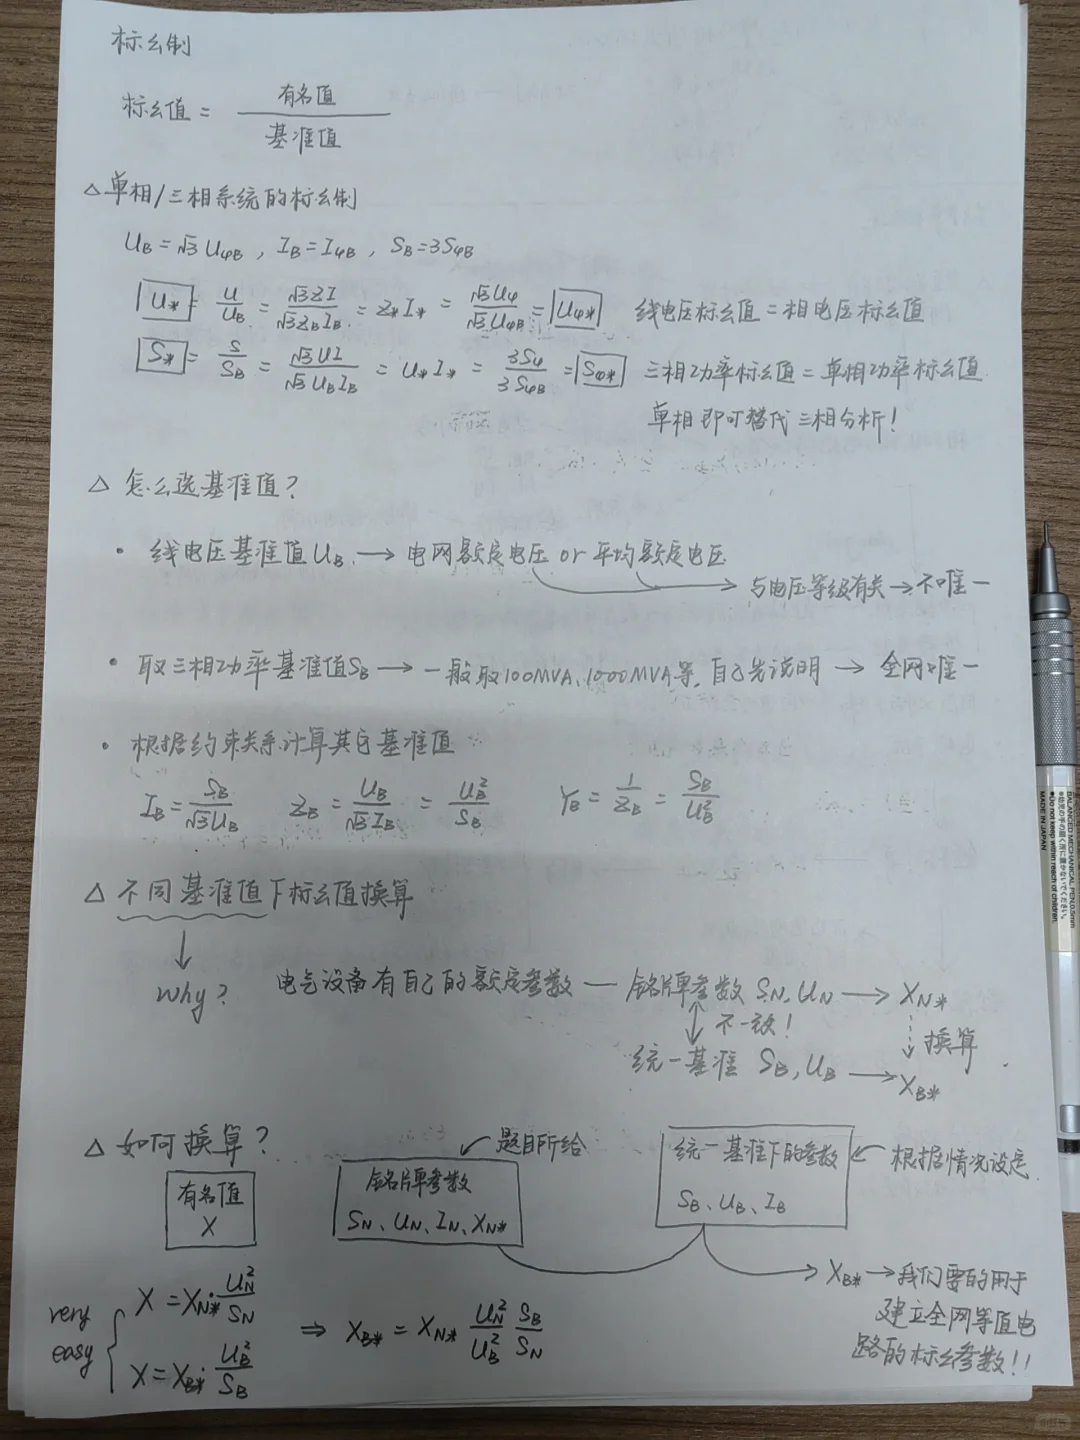 标幺制
标幺值 = 有名值 / 基准值
△ 单相/三相系统的标幺制
U_B = √3 U_φB , I_B = I_φB , S_B = 3S_φB
U* = U/U_B = √3ZI/√3Z_B I_B = Z* I* = √3U_φ/√3U_φB = U_φ* 线电压标幺值 = 相电压标幺值
S* = S/S_B = √3UI/√3U_B I_B = U* I* = 3S_φ/3S_φB = S_φ* 三相功率标幺值 = 单相功率标幺值
单相即可替代三相分析!
△ 怎么选基准值?
· 线电压基准值U_B. → 电网额定电压 or 平均额定电压
→ 与电压等级有关 → 不唯一
· 取三相功率基准值S_B → 一般取100MVA、1000MVA等, 自己先说明 → 全网唯一
· 根据约束关系计算其它基准值
I_B = S_B/√3U_B Z_B = U_B/√3I_B = U_B²/S_B Y_B = 1/Z_B = S_B/U_B²
△ 不同基准值下标幺值换算
↓
Why? 电气设备有自己的额定参数 — 铭牌参数 S_N、U_N → X_N*
↕ 不一致! ↓ 换算
统一基准 S_B, U_B → X_B*
△ 如何换算?
题目所给
有名值
X
铭牌参数
S_N、U_N、I_N、X_N*
统一基准下的参数
S_B、U_B、I_B
根据情况设定
→ X_B* → 我们要的用于
建立全网等值电
路的标幺参数!!
very
easy
X = X_N* · U_N²/S_N
X = X_B* · U_B²/S_B
⇒ X_B* = X_N* U_N²/U_B² S_B/S_N
BALANCED MECHANICAL PEN 0.5mm
●Do not keep within reach of children.
MADE IN JAPAN